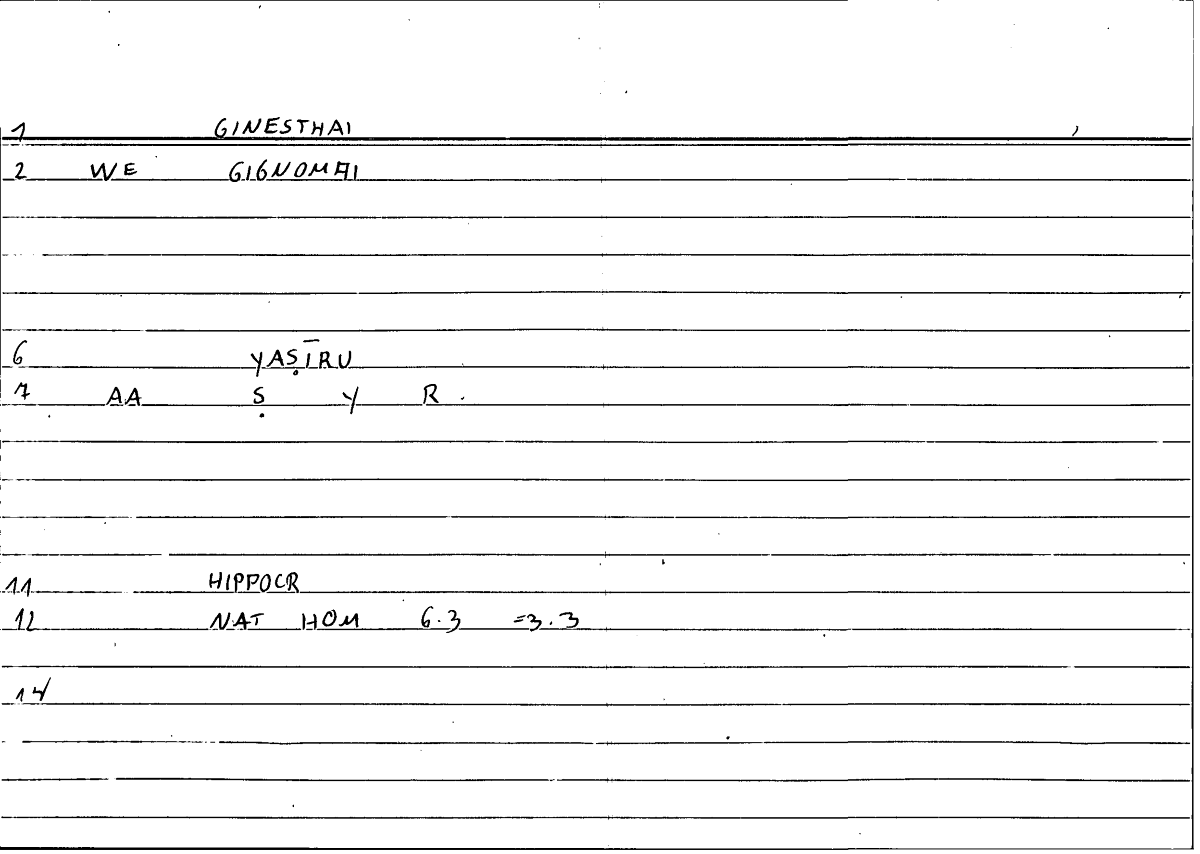 1 GINESTHAI
2 WE GIGNOMAI
6 YAṢĪRU
7 AA Ṣ Y R
11 HIPPOCR
12 NAT HOM 6.3 =3.3
14